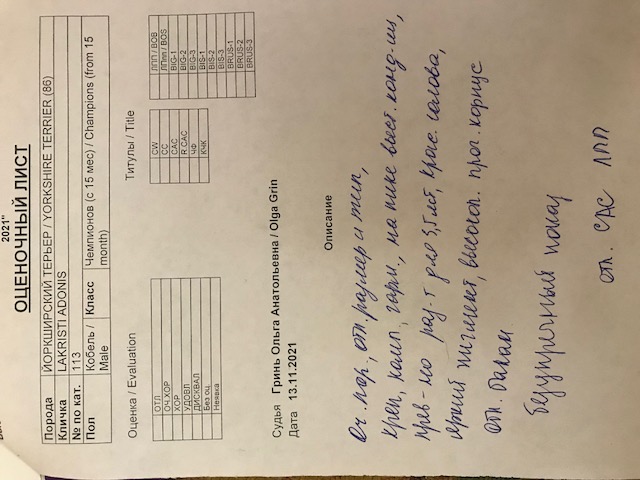 2021"
ОЦЕНОЧНЫЙ ЛИСТ
Порода ЙОРКШИРСКИЙ ТЕРЬЕР / YORKSHIRE TERRIER (86)
Кличка LAKRISTI ADONIS
№ по кат. 113
Пол Кобель / Male Класс Чемпионов (с 15 мес) / Champions (from 15 month)
Оценка / Evaluation
ОТЛ
ОЧ.ХОР
ХОР
УДОВЛ
ДИСКВАЛ
Без оц.
Неявка
Титулы / Title
CW
CC
CAC
R.CAC
ЧФ
КЧК
ЛПП / BOB
ЛПпп / BOS
BIG-1
BIG-2
BIG-3
BIS-1
BIS-2
BIS-3
BRUS-1
BRUS-2
BRUS-3
Судья Гринь Ольга Анатольевна / Olga Grin
Дата 13.11.2021
Описание
Оч. пор., отл. размер и тип,
креп., комп., гарм., на пике выст. конд-ии,
прев-но раз-т для 5,5 лет, крас. голова,
яркий пигмент, высокоп. прог. корпус
отл. баланс
безупречный показ
отл. CAC ЛПП